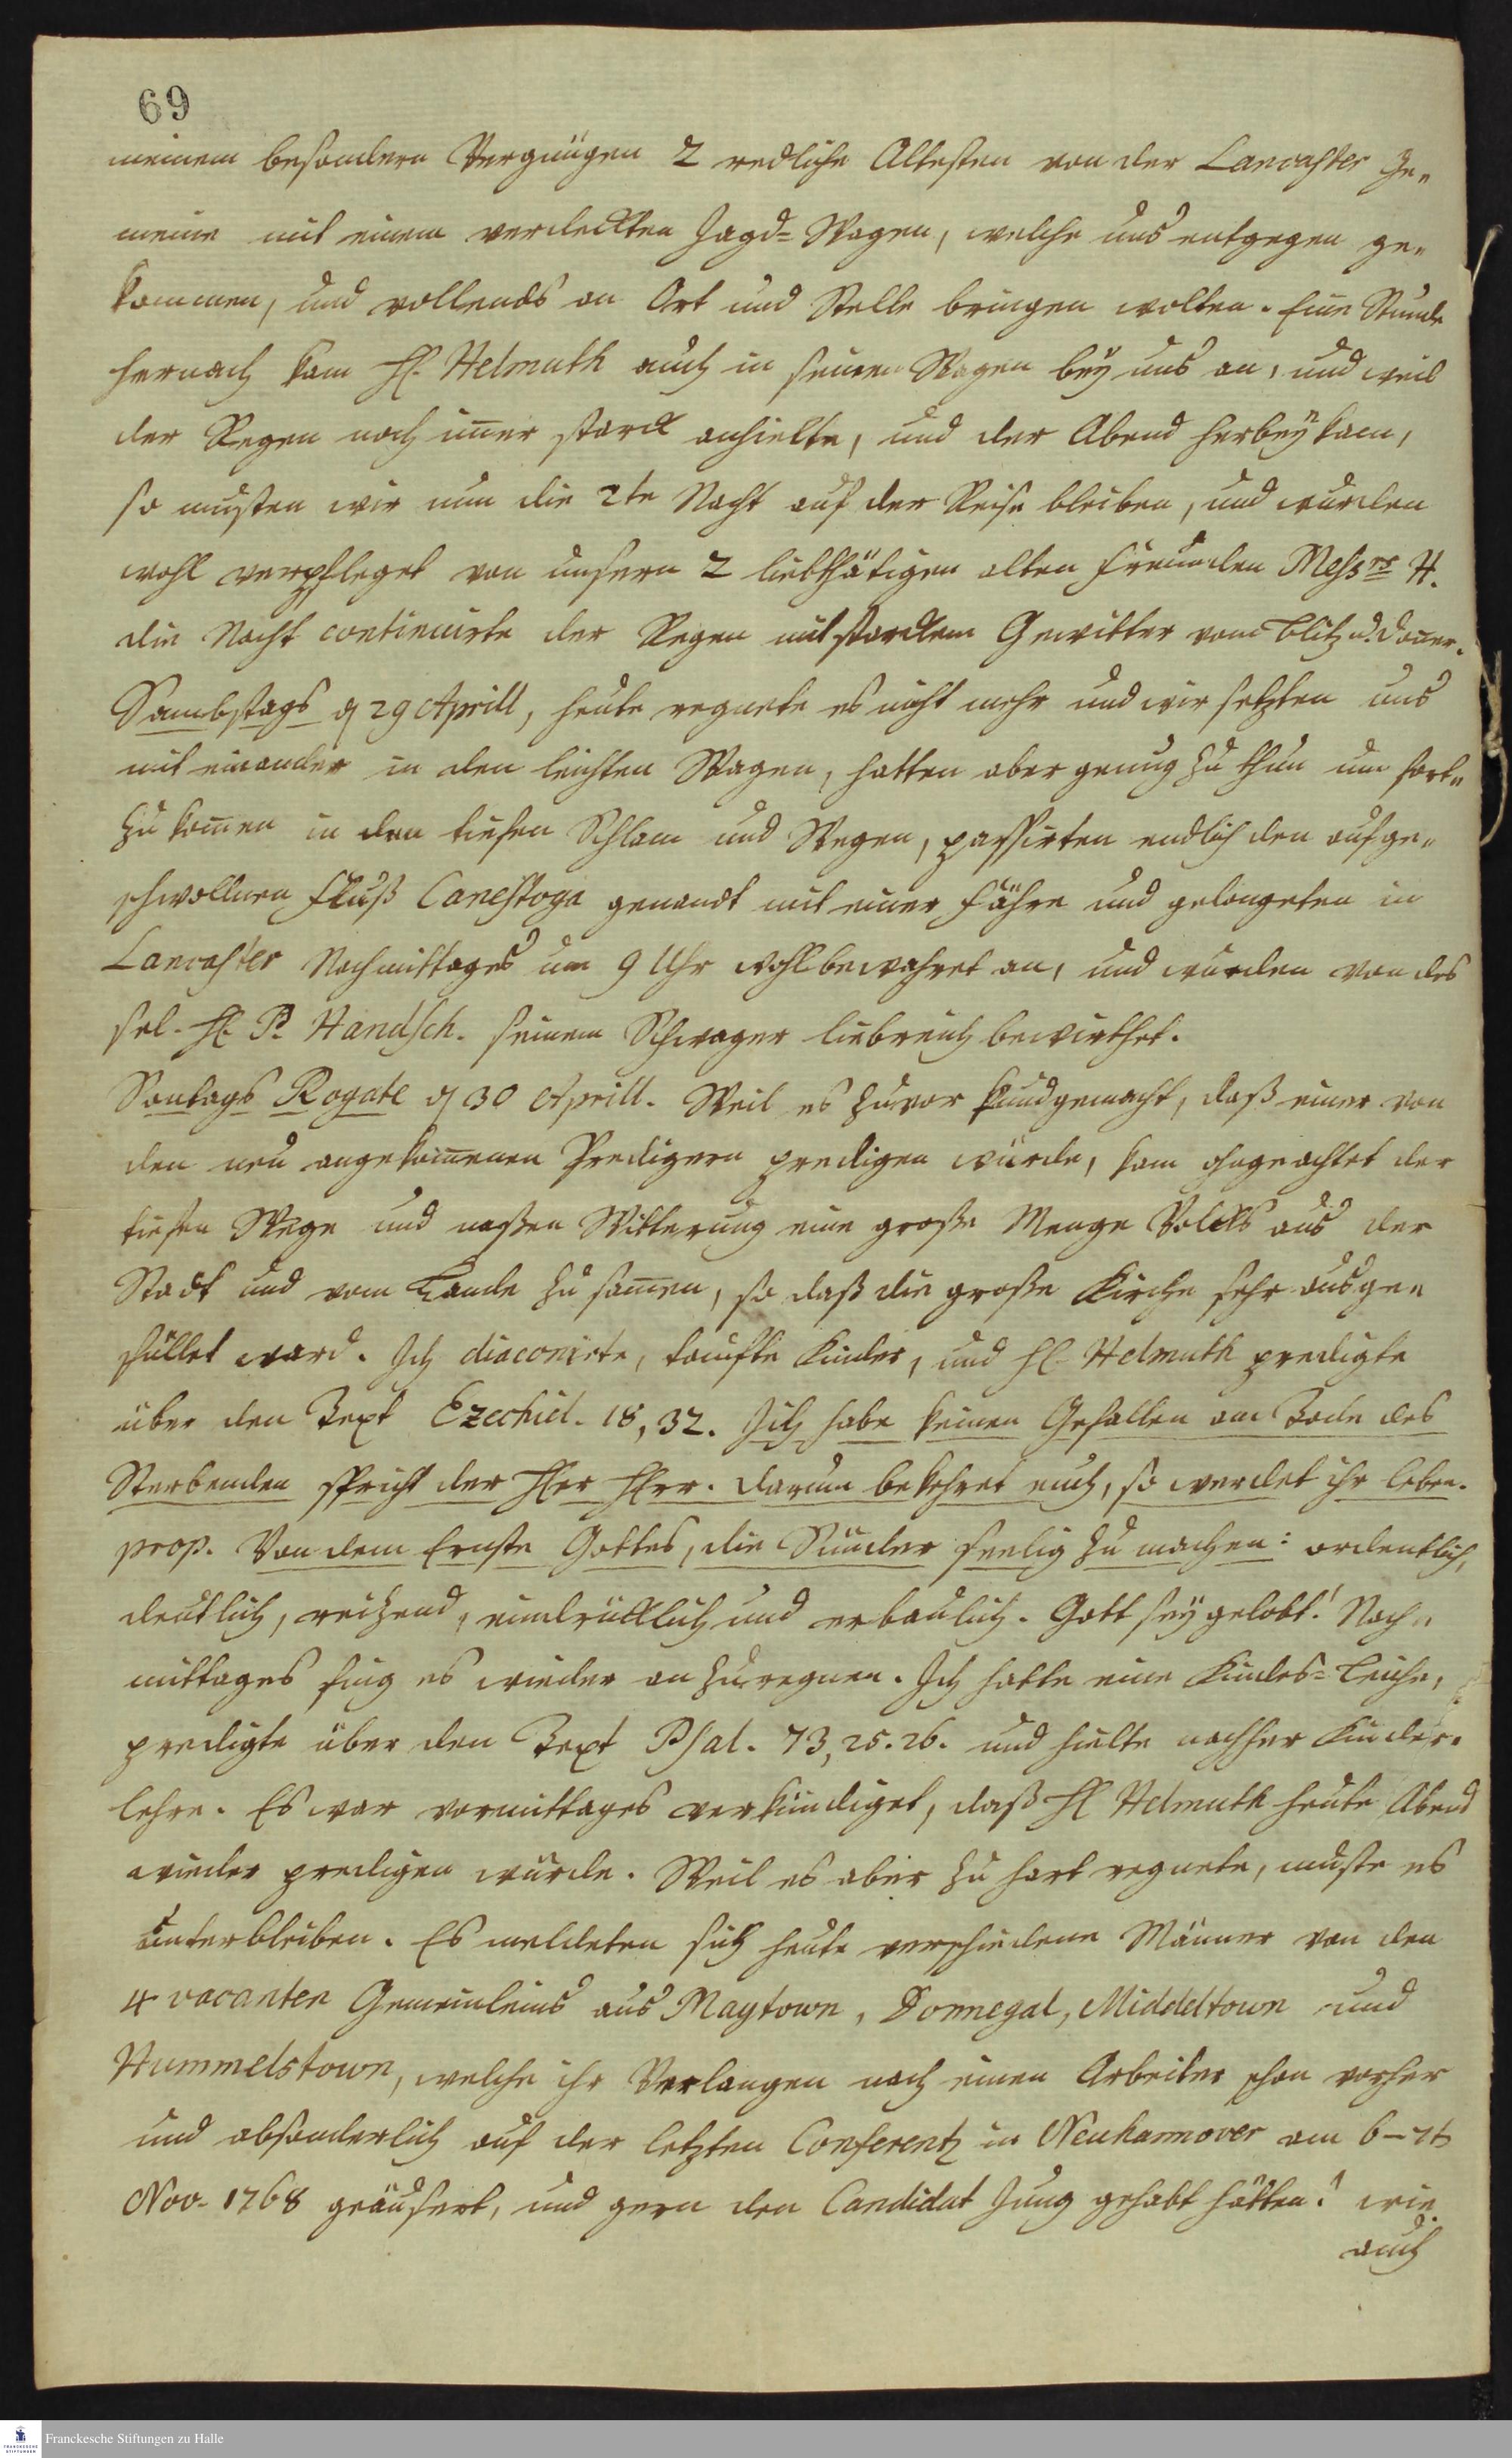 69
meinem besondern Vergnügen 2 redliche Altesten von der Lancaster Ge-
meine mit einem verdeckten Jagd-Wagen, welche uns entgegen ge-
kommen, und vollends an Ort und Stelle bringen wolten. Eine Stunde
hernach kam H. Helmuth auch in seinem Wagen bey uns an, und weil
der Regen noch imer starck anhielte, und der Abend herbey kam,
so musten wir nun die 2te Nacht auf der Reise bleiben, und wurden
wohl verpfleget von unsern 2 liebthätigen alten Freunden Messrs H.
die Nacht continuirte der Regen mit starckem Gewitter vom Blitz u. Doner.
Sambstags d 29 Aprill, heute regnete es nicht mehr und wir setzten uns
mit einander in den leichten Wagen, hatten aber genug zu thun um fort-
zu komen in den tiefen Schlam und Wegen, passirten endlich den aufge-
schwollnen Fluß Canestoga genandt mit einer Fähre und gelangeten in
Lancaster Nachmittages um 9 Uhr wohlbewahret an, und wurden von des
sel. H. P. Handsch. seinem Schwager liebreich bewirthet.
Sontags Rogate d 30 Aprill. Weil es zuvor kundgemacht, daß einer von
den neu angekomenen Predigern predigen würde, kam ohngeachtet der
tiefen Wege und naßen Witterung eine große Menge Volcks aus der
Stadt und vom Lande zu samen, so daß die große Kirche sehr ausge-
füllet ward. Ich diaconirte, taufte Kinder, und H. Helmuth predigte
über den Text Ezechiel. 18, 32. Ich habe keinen Gefallen am Tode des
Sterbenden spricht der Herr Herr. Darum bekehret euch, so werdet ihr leben.
prop. Von dem Ernste Gottes, die Sünder seelig zu machen: ordentlich,
deutlich, reitzend, eindrücklich und erbaulich. Gott sey gelobt! Nach-
mittages fing es wieder an zu regnen. Ich hatte eine Kindes-Leiche,
predigte über den Text Psal. 73, 25. 26. und hielte nachher Kinder-
lehre. Es war vormittages verkündiget, daß H. Helmuth heute Abend
wieder predigen würde. Weil es aber zu hart regnete, muste es
unterbleiben. Es meldeten sich heute verschiedene Männer von den
4 vacanten Gemeinleins aus Maytown, Donnegal, Middeltown und
Hummelstown, welche ihr Verlangen nach einen Arbeiter schon vorher
und absonderlich auf der letzten Conferentz in Neuhannover am 6-7t
Nov. 1768 geäusert, und gern den Candidat Jung gehabt hätten! wie
auch
Franckesche Stiftungen zu Halle